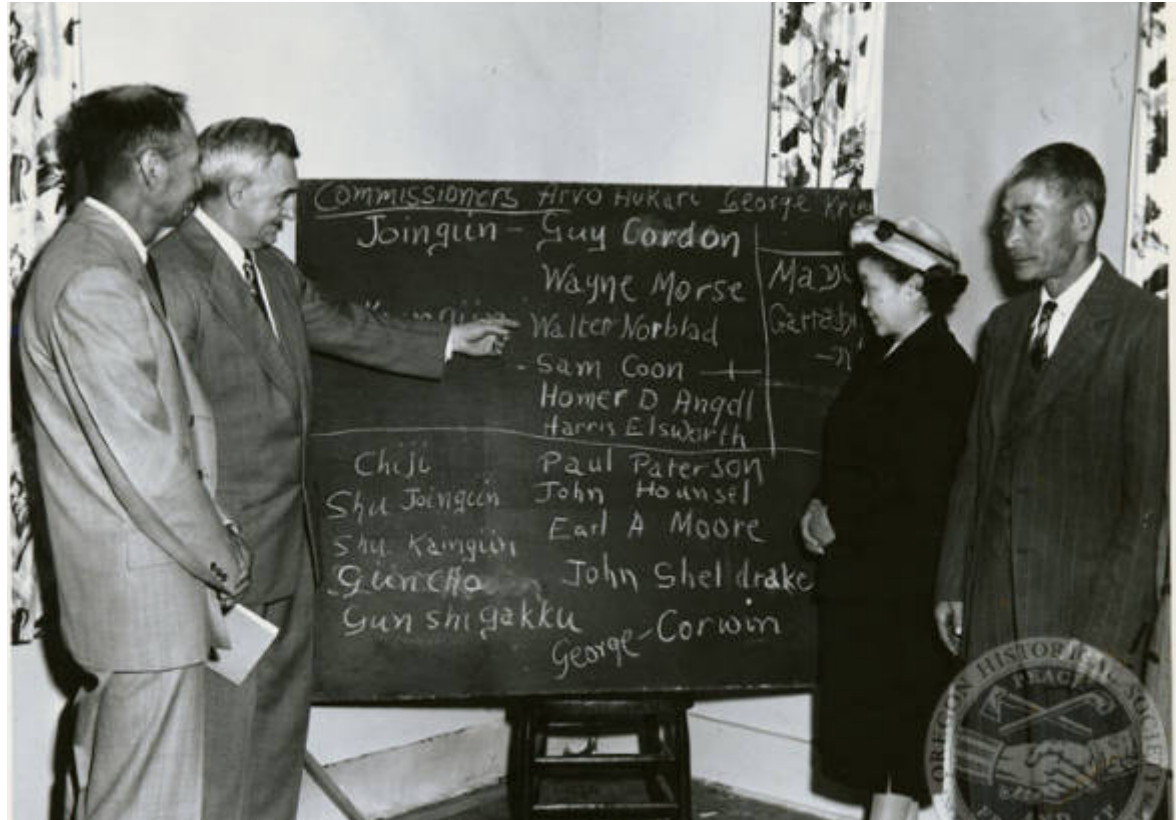 Commissioners Arvo Hukari George
Joingiin - Guy Cordon
Wayne Morse
Walter Norblad
- Sam Coon
Homer D Angell
Harris Elsworth
Chiji Paul Paterson
Shu Joingiin John Hounsel
Shu Kaingiin Earl A Moore
Guncho John Sheldrake
Gun shigakku George - Corwin
OREGON HISTORICAL SOCIETY
PEACE